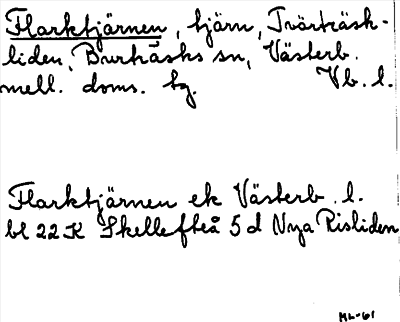 Flarktjärnen, tjärn, Tvärträsk-
liden, Burträsks sn, Västerb.
mell. doms. tg. Vb. l.
Flarktjärnen ek Västerb. l.
bl 22 K Skellefteå 5 d Nya Risliden
ML-61